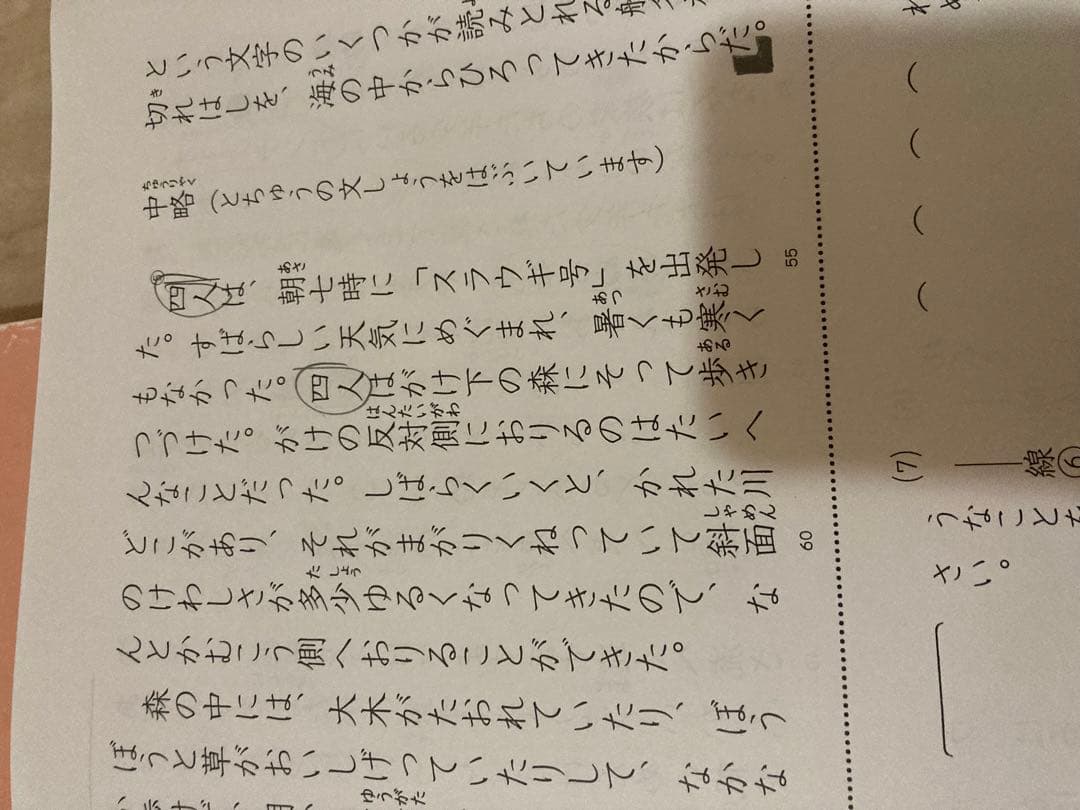 という文字のいくつかが読みとれる
切れはしを、海の中からひろってきたからだ。
中略（とちゅうの文しょうをはぶいています）
四人は、朝七時に「スラウギ号」を出発し
た。すばらしい天気にめぐまれ、暑くも寒く
もなかった。四人はがけ下の森にそって歩き
つづけた。がけの反対側におりるのはたいへ
んなことだった。しばらくいくと、かれた川
どこがあり、それがまがりくねっていて斜面
のけわしさが多少ゆるくなってきたので、な
んとかむこう側へおりることができた。
森の中には、大木がたおれていたり、ぼう
ぼうと草がおいしげっていたりして、なかな
55
60
(7)
線⑥
うなことを
さい。